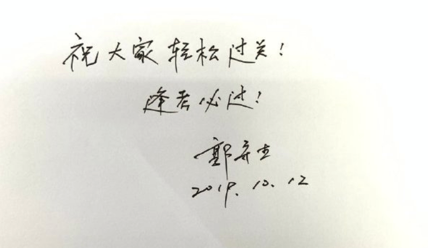 祝大家轻松过关！
逢考必过！
2019.10.12